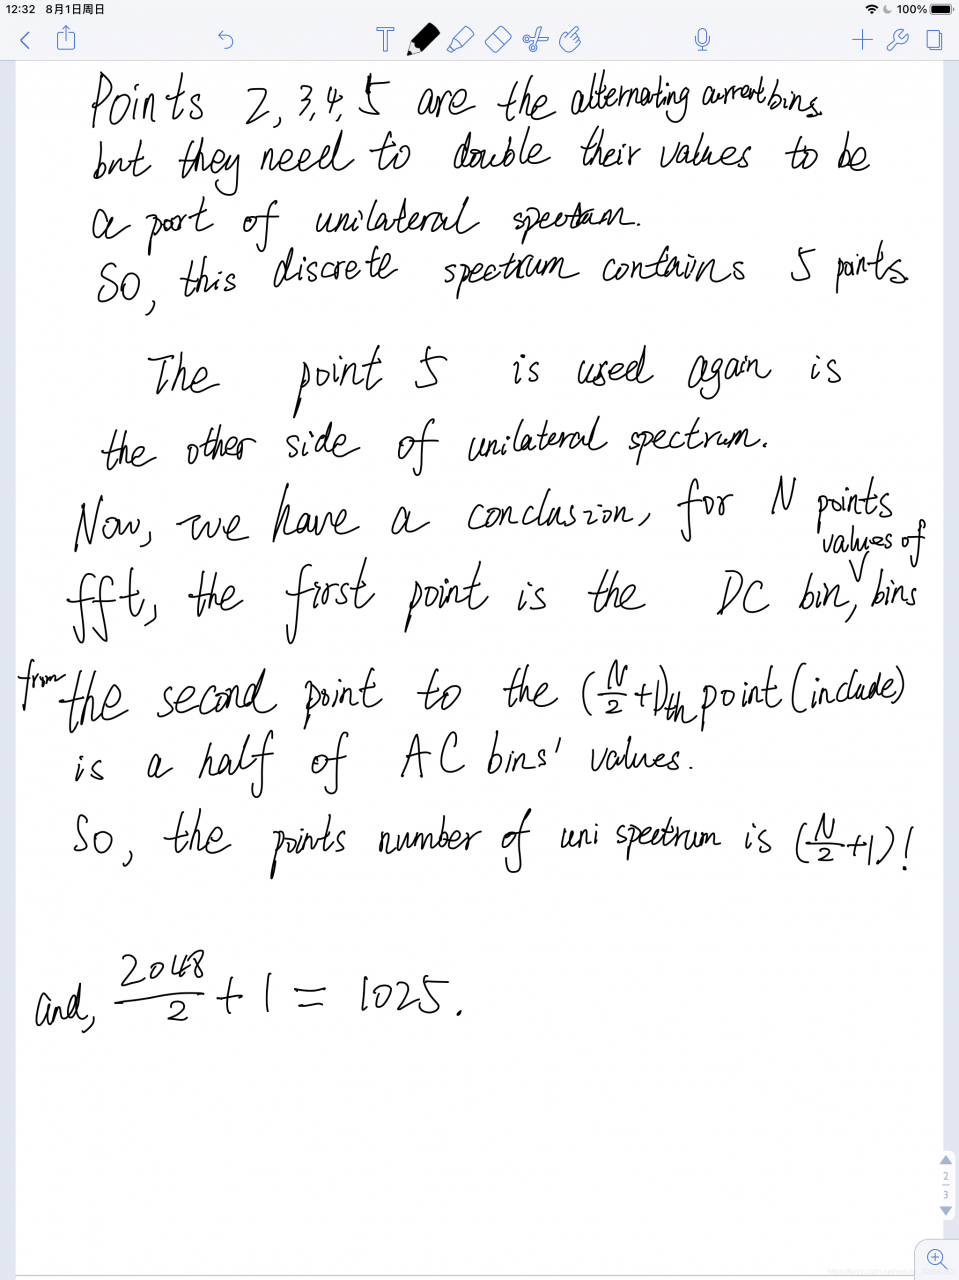 12:32 8月1日周日
100%
T
Points 2, 3, 4, 5 are the alternating current bins
but they need to double their values to be
a part of unilateral spectrum.
So, this discrete spectrum contains 5 points
The point 5 is used again is
the other side of unilateral spectrum.
Now, we have a conclusion, for N points
values of
fft, the first point is the DC bin, bins
from the second point to the (N/2 + 1)th point (include)
is a half of AC bins' values.
So, the points number of uni spectrum is (N/2 + 1)!
and, 2048/2 + 1 = 1025.
2
3